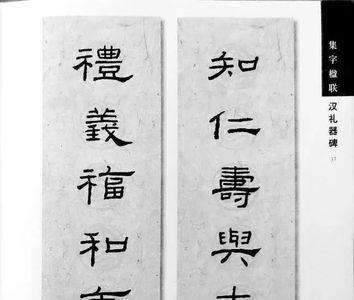 集字楹联
汉礼器碑
17
知仁壽與
禮義福和